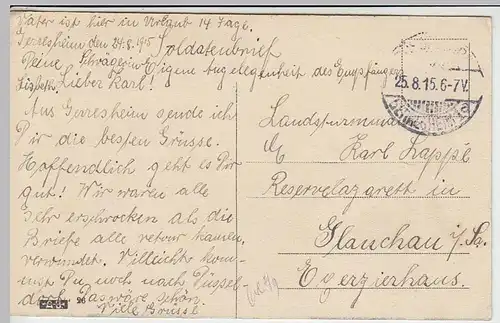 Vater ist hier in Urlaub 14 Tage.
Gerresheim den 24.8.1915
Soldatenbrief
Deine Schwägerin
Eigene Angelegenheit des Empfängers
Lieber Karl!
Aus Gerresheim sende ich
Dir die besten Grüsse.
Hoffendlich geht es Dir
gut! Wir waren alle
sehr erschrocken als die
Briefe alle retour kamen,
verwundet. Villeicht kom-
mst Du noch nach Düssel-
dorf. Das wäre schön.
Viele Grüsse
25.8.15. 6-7V.
GERRESHEIM
Landsturmmann
Karl Lappe
Reservelazarett in
Glauchau i/Sa.
Exerzierhaus.
96